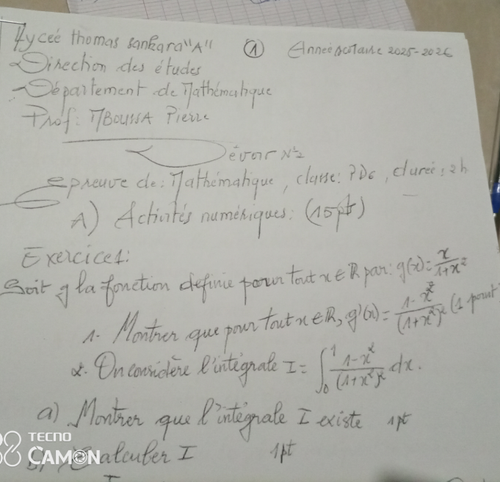 Lyceé thomas sankara "A" ① Année scolaire 2025-2026
Direction des études
Département de Mathématique
Prof: MBOUSSA Pierre
Dévoir N°2
Epreuve de: Mathématique, classe: PDc, durée: 2h
A) Activités numériques: (15pts)
Exercice1:
Soit g la fonction définie pour tout x∈ℝ par: g(x)=x/(1+x²)
1- Montrer que pour tout x∈ℝ, g'(x)=(1-x²)/(1+x²)² (1 point
2. On considère l'intégrale I=∫₀¹ (1-x²)/(1+x²)² dx.
a) Montrer que l'intégrale I existe 1pt
TECNO
CAMON
b) Calculer I 1pt